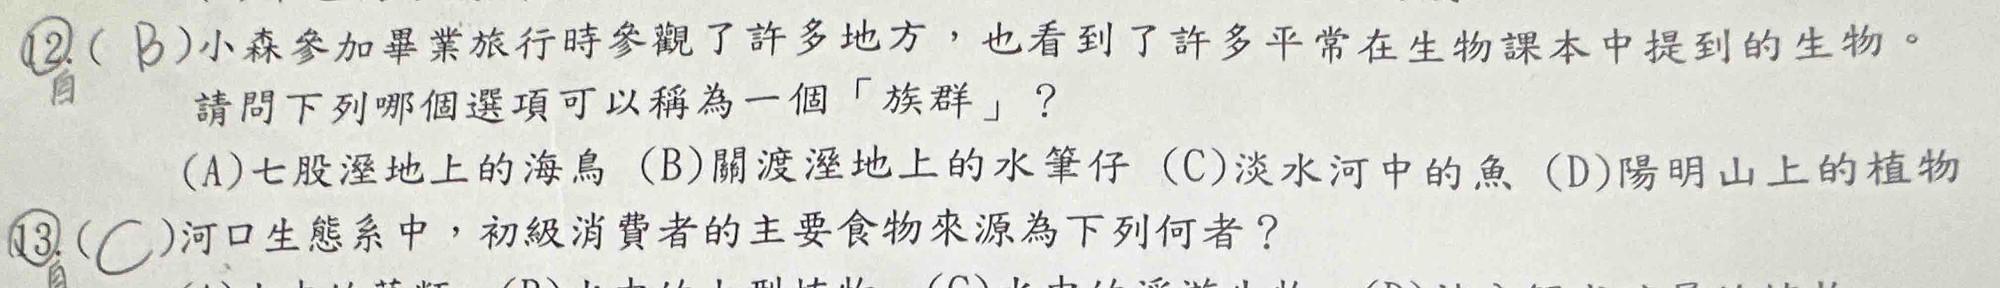 12.(B)小森參加畢業旅行時參觀了許多地方，也看到了許多平常在生物課本中提到的生物。
自
請問下列哪個選項可以稱為一個「族群」？
(A)七股溼地上的海鳥 (B)關渡溼地上的水筆仔 (C)淡水河中的魚 (D)陽明山上的植物
13.(C)河口生態系中，初級消費者的主要食物來源為下列何者？
自